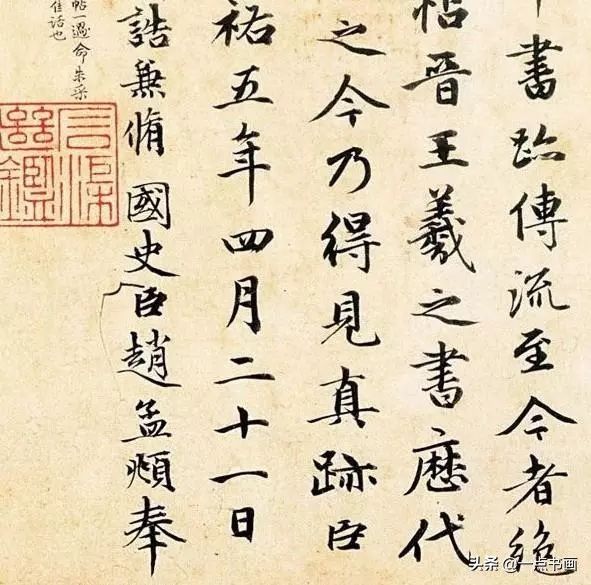 書跡傳流至今者絕
帖晉王羲之書歷代
之今乃得見真跡臣
祐五年四月二十一日
誥兼脩國史臣趙孟頫奉
帖一過命朱采
佳話也
头条 @一点书画